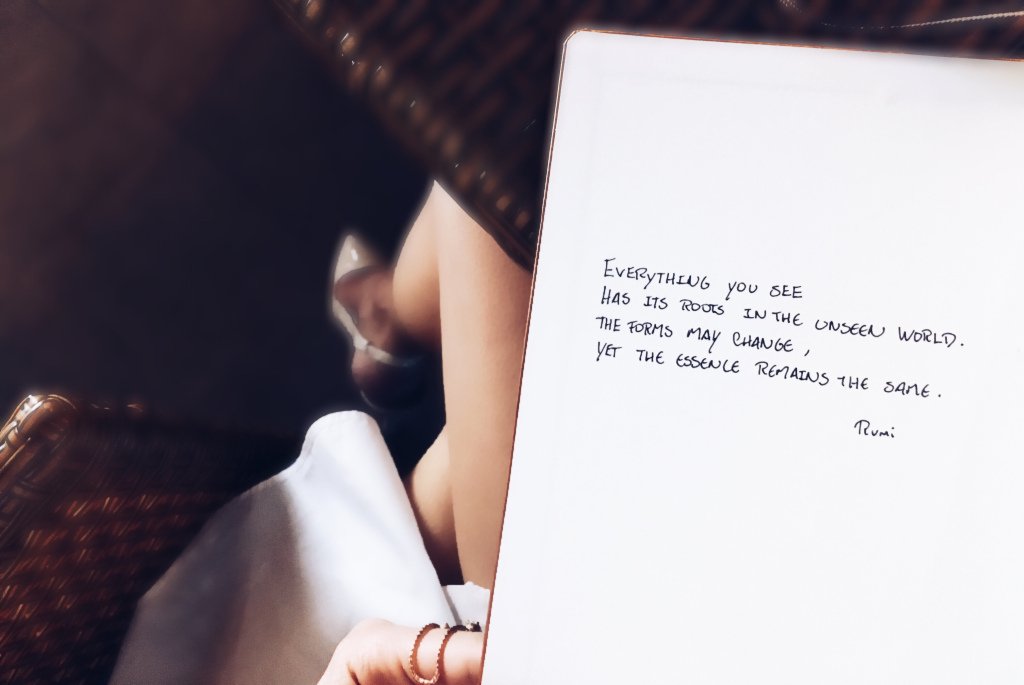 EVERYTHING YOU SEE
HAS ITS ROOTS IN THE UNSEEN WORLD.
THE FORMS MAY CHANGE,
YET THE ESSENCE REMAINS THE SAME.
RUMI